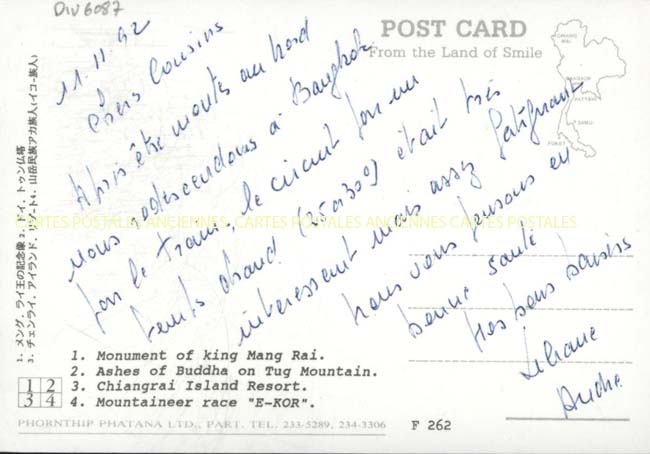 DIV6087
POST CARD
From the Land of Smile
CHIANG MAI
BANGKOK
PATTAYA
SAMUI
PHUKET
11.11.92
Chers Cousins
Après être montés au Nord
nous redescendons à Bangkok
par le train, le circuit par un
temps chaud (25 à 30°) était très
intéressant mais assez fatiguant
nous vous pensons en
bonne santé
Mes bons baisirs
Liliane
André
CARTES POSTALES ANCIENNES, CARTES POSTALES ANCIENNES CARTES POSTALES ANCIENNES
1. メング、ライ王の記念像 2. ドイ、トゥン仏塔
3. チェンライ、アイランド、リゾート 4. 山岳民族アカ族人(イコー族人)
1. Monument of king Mang Rai.
2. Ashes of Buddha on Tug Mountain.
3. Chiangrai Island Resort.
4. Mountaineer race "E-KOR".
1 2
3 4
PHORNTHIP PHATANA LTD., PART. TEL. 233-5289, 234-3306
F 262